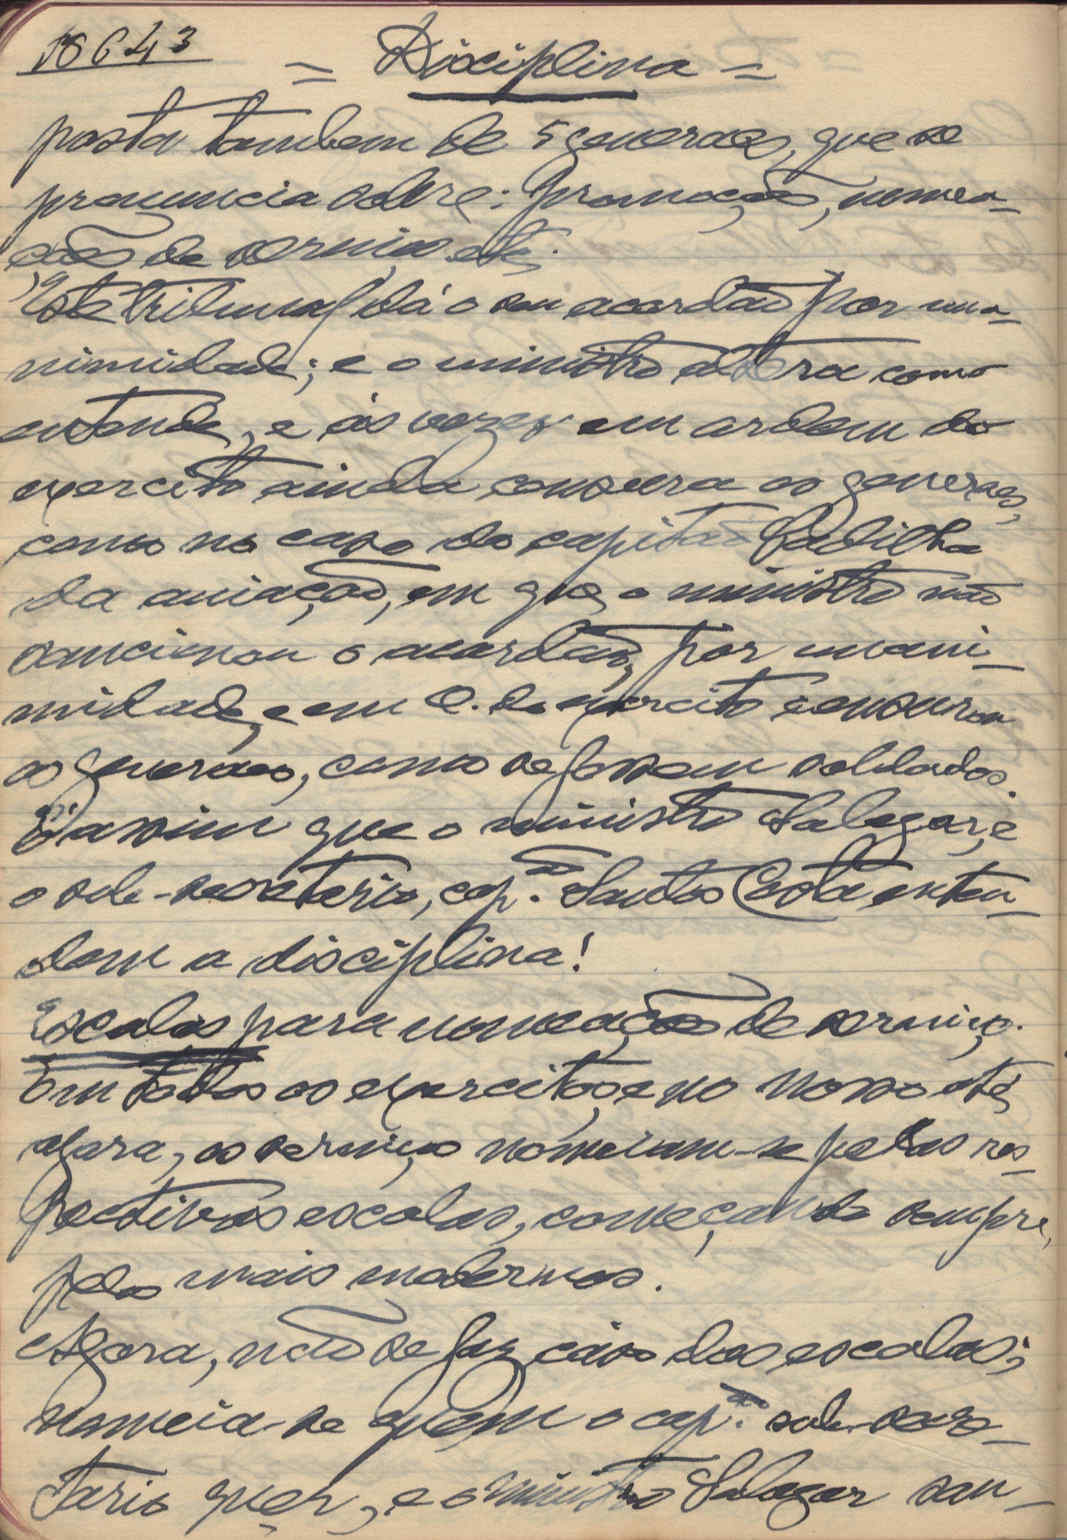 18643
= Disciplina =
posta tambem de 5 generaes, que se
pronuncia sobre: promoções, nomea-
ções de serviço etc.
Este tribunal dá o seu acordão por una-
nimidade; e o ministro altera como
entende, e ás vezes em ordem do
exercito ainda censura os generaes,
como no caso do capitão Padilha
da aviação, em que o ministro não
sancionou o acordão, por unani-
midade, e em O. do exercito censurou
os generaes, como se fossem soldados.
É assim que o ministro Salazar, e
o sub-secretario, cap.ão Santos Costa enten-
dem a disciplina!
Escalas para nomeação de serviço.
Em todos os exercitos, e no nosso até
agora, os serviços nomeiam-se pelas res-
pectivas escalas, começando sempre,
pelos mais modernos.
Agora, não se faz caso das escalas;
nomeia-se quem o cap.ão sub-secre-
tario quer, e o ministro Salazar san-